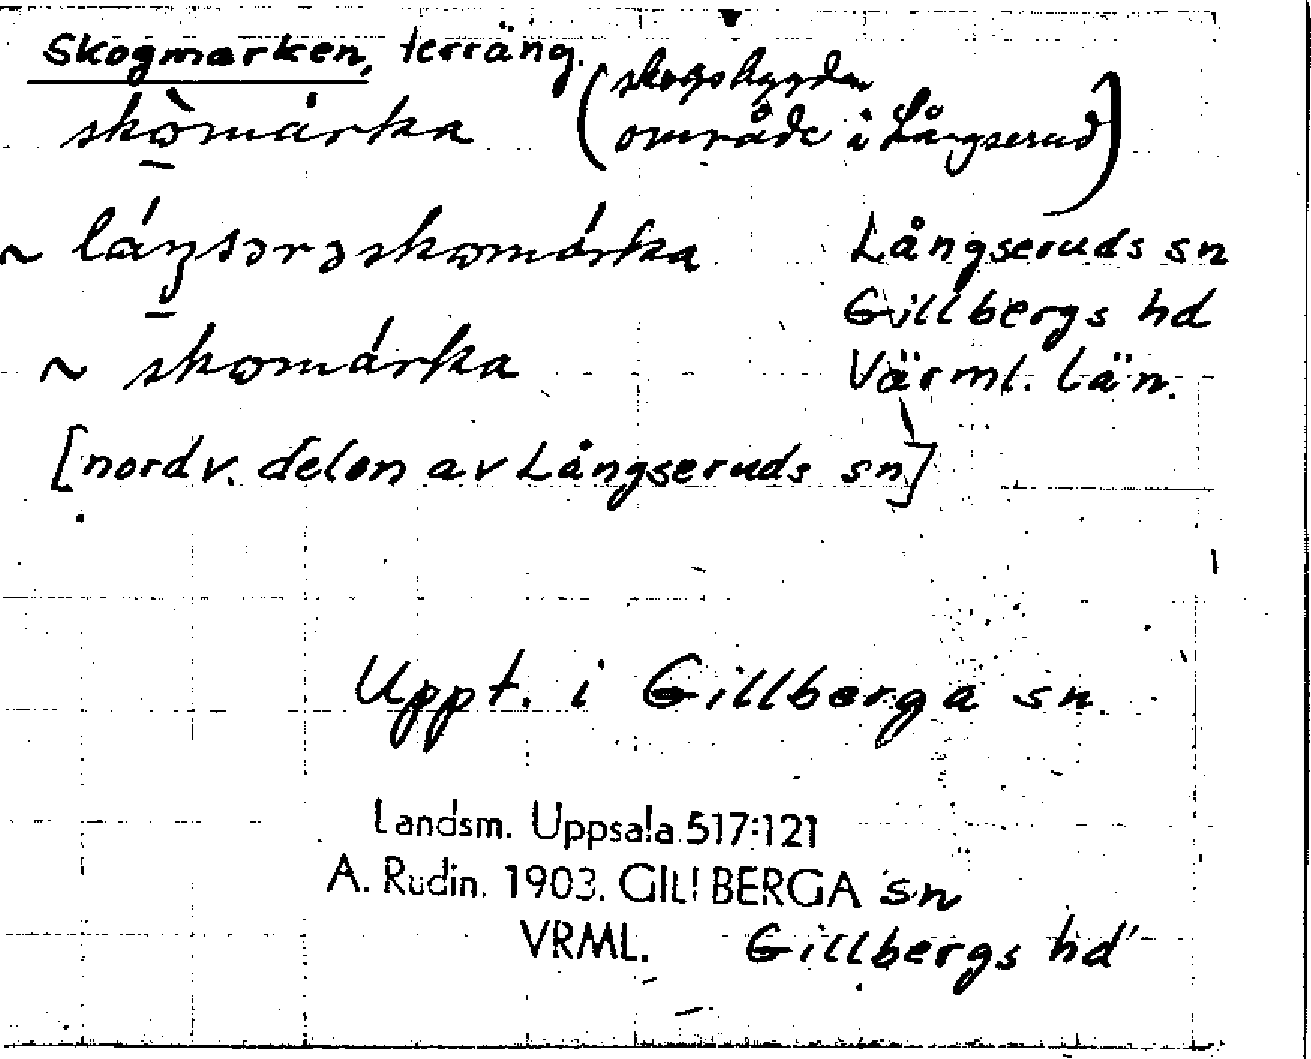 Skogmarken, terräng.
skòmárka (skogsbygda
område i Långserud)
~ láŋsərəskomárka
Långseruds sn
~ skomárka
Gillbergs hd
Värml. län.
[nordv. delen av Långseruds sn]
Uppt. i Gillberga sn
Landsm. Uppsala 517:121
A. Rudin. 1903. GILLBERGA sn
VRML. Gillbergs hd